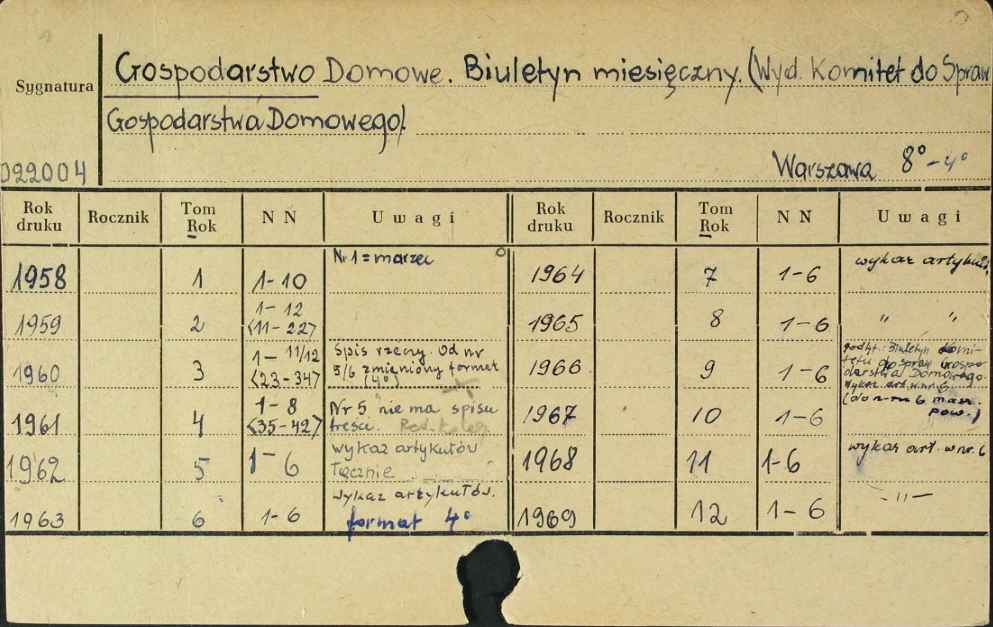 Sygnatura
Gospodarstwo Domowe. Biuletyn miesięczny. (Wyd. Komitet do Spraw
Gospodarstwa Domowego).
022004
Warszawa 8° - 4°
Rok druku Rocznik Tom Rok NN Uwagi Rok druku Rocznik Tom Rok NN Uwagi
1958 1 1-10 Nr 1 = marzec
1959 2 1-12 <11-22>
1960 3 1-11/12 <23-34> Spis rzeczy. Od nr 5/6 zmieniony format (4°)
1961 4 1-8 <35-42> Nr 5 nie ma spisu treści.
1962 5 1-6 wykaz artykułów łącznie
1963 6 1-6 wykaz artykułów. format 4°
1964 7 1-6 wykaz artykuł.
1965 8 1-6 " "
1966 9 1-6 podtyt. Biuletyn Komitetu do spraw Gospodarstwa Domowego
1967 10 1-6
1968 11 1-6 wykaz art. w nr. 6
1969 12 1-6 -"-